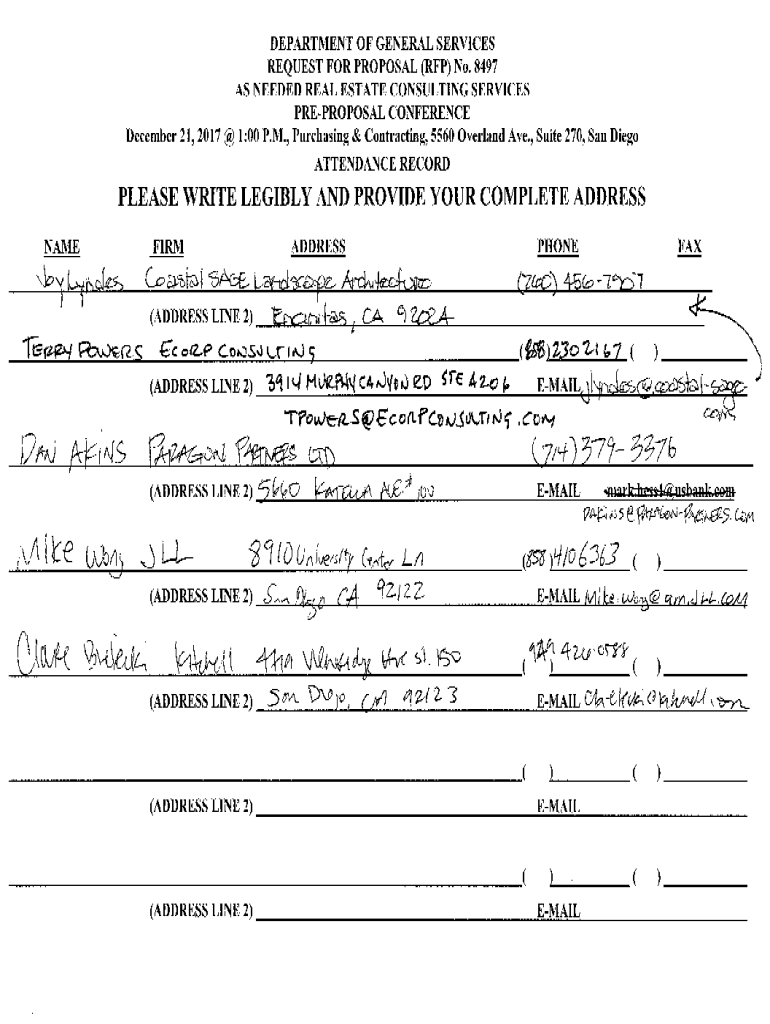 DEPARTMENT OF GENERAL SERVICES
REQUEST FOR PROPOSAL (RFP) No. 8497
AS NEEDED REAL ESTATE CONSULTING SERVICES
PRE-PROPOSAL CONFERENCE
December 21, 2017 @ 1:00 P.M., Purchasing & Contracting, 5560 Overland Ave., Suite 270, San Diego
ATTENDANCE RECORD
PLEASE WRITE LEGIBLY AND PROVIDE YOUR COMPLETE ADDRESS
NAME FIRM ADDRESS PHONE FAX
Joy Lyndes Coastal SAGE Landscape Architecture (760) 456-7907
(ADDRESS LINE 2) Encinitas, CA 92024
TERRY POWERS ECORP CONSULTING (858) 2302167 ( )
(ADDRESS LINE 2) 3914 MURPHY CANYON RD STE A206 E-MAIL jlyndes@coastal-sage.
com
TPOWERS@ECORPCONSULTING.COM
DAN AKINS PARAGON PARTNERS LTD (714) 379-3376
(ADDRESS LINE 2) 5660 KATELLA AVE # 100 E-MAIL mark.hess1@usbank.com
DAKINS@PARAGON-PARTNERS.COM
Mike Wong JLL 8910 University Center LN (858) 4106363 ( )
(ADDRESS LINE 2) San Diego CA 92122 E-MAIL Mike.Wong@am.JLL.COM
Kitchell St. 150 (949 426-0588 ) ( )
(ADDRESS LINE 2) San Diego, CA 92123 E-MAIL
( ) ( )
(ADDRESS LINE 2) E-MAIL
( ) ( )
(ADDRESS LINE 2) E-MAIL